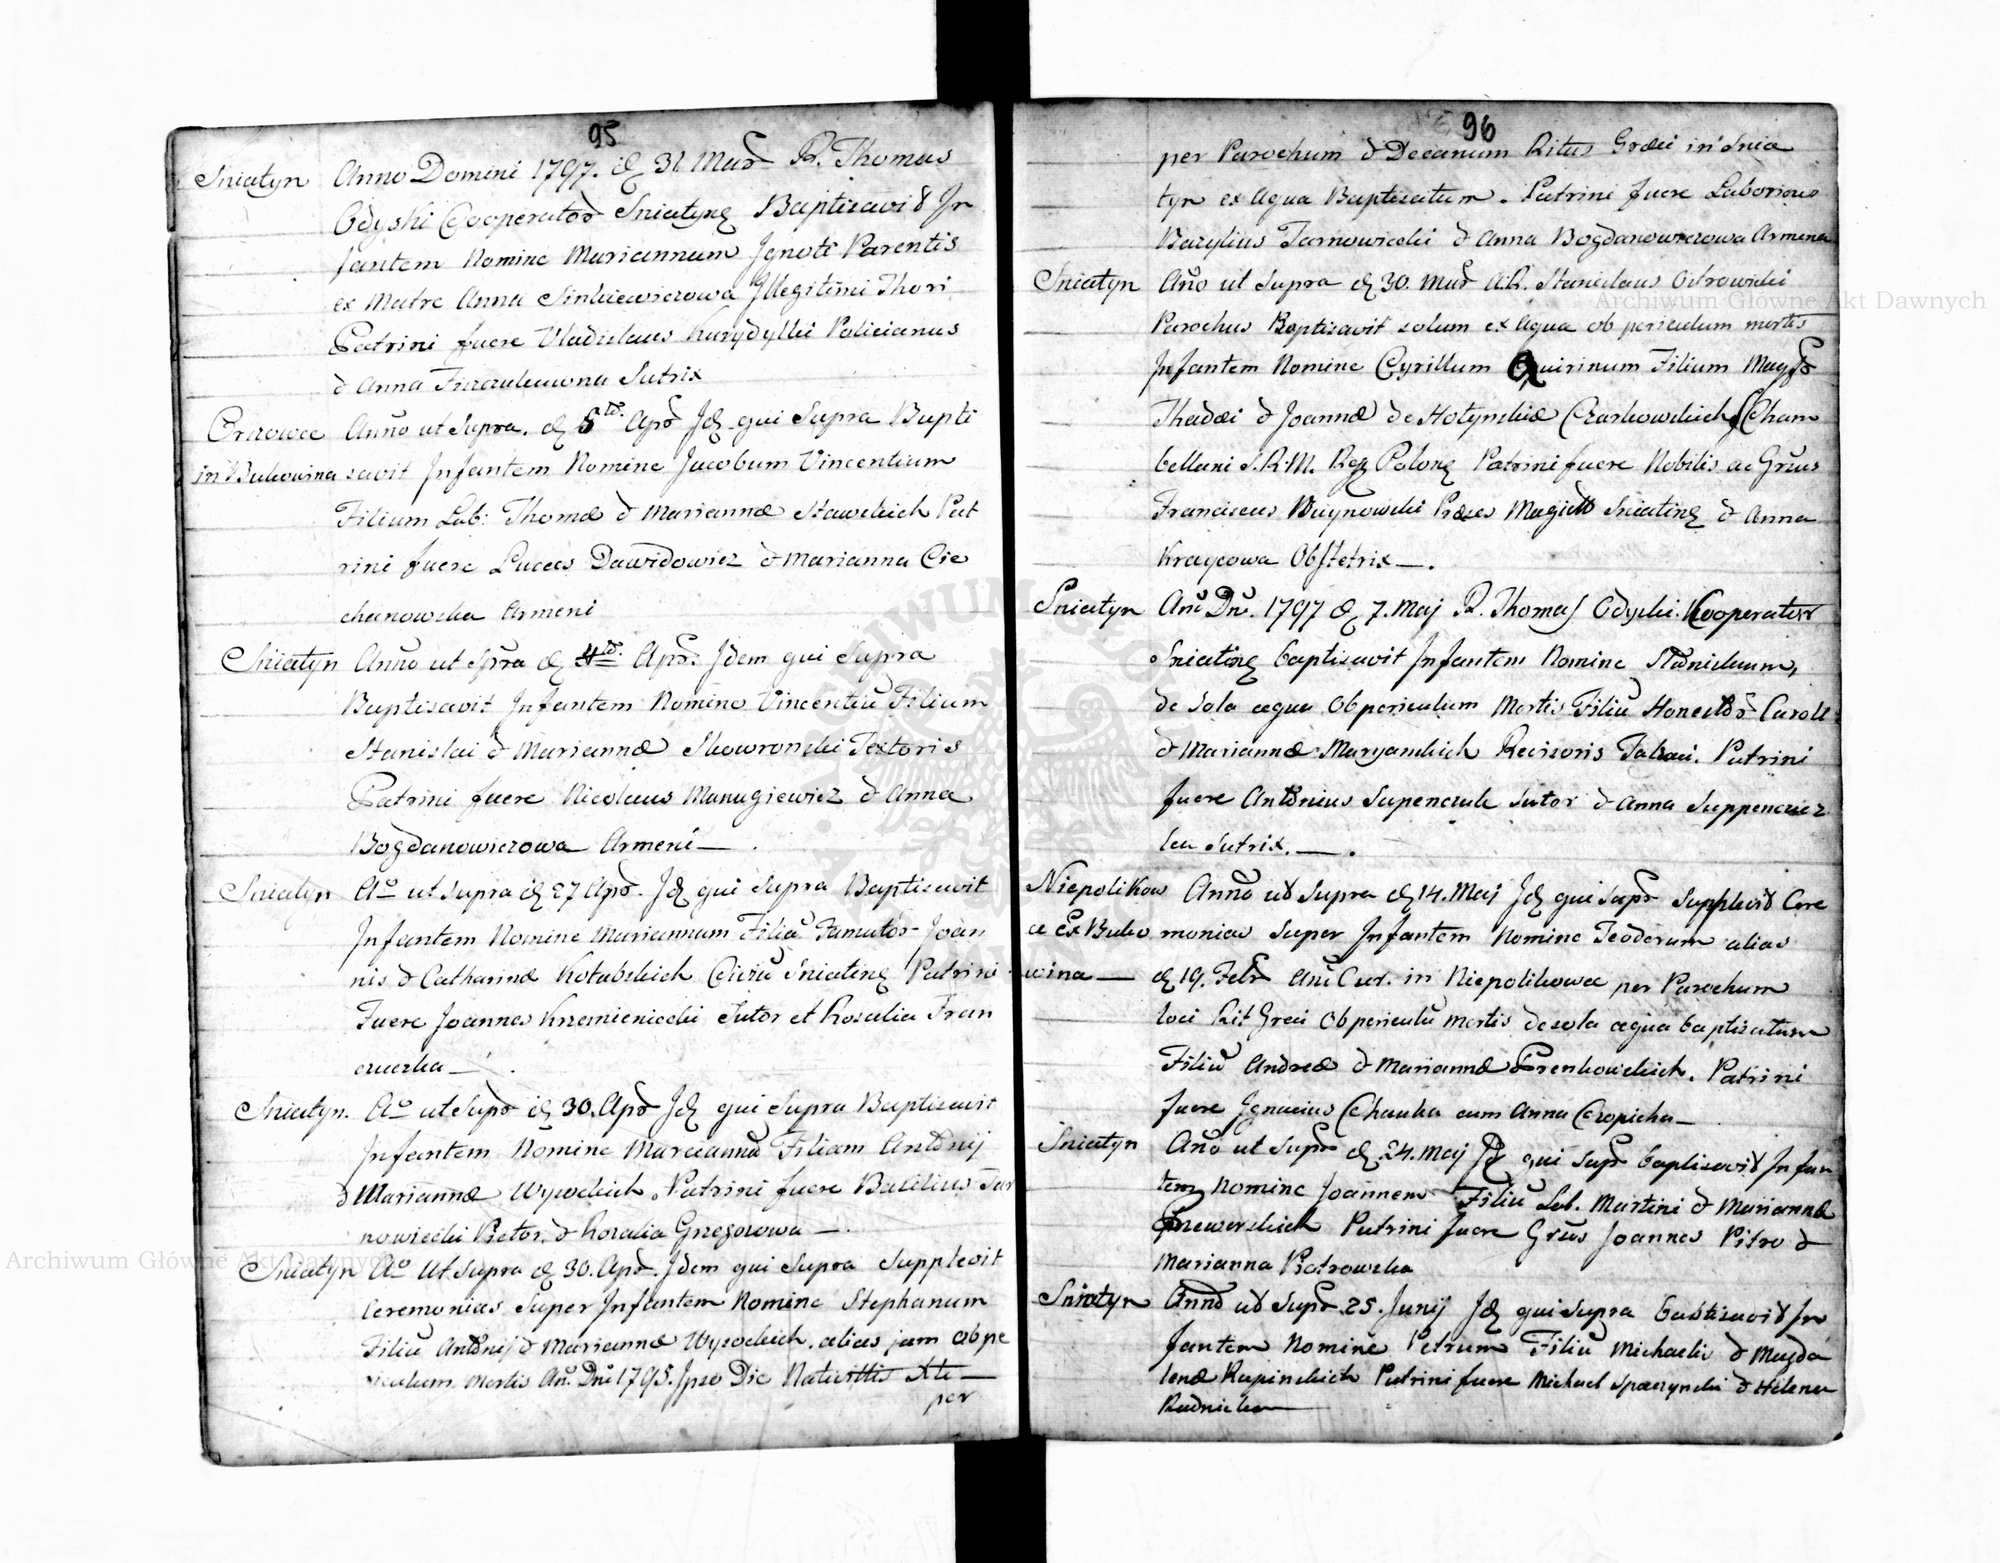 95
Sniatyn Anno Domini 1797. d 31 Mar R. Thomas
Odyski Cooperator Sniatyn Baptisavit In
fantem Nomine Mariannam Ignoti Parentis
ex Matre Anna Sinkiewiczowa Illegitimi Thori
Patrini fuere Vladislaus Policianus
& Anna Sutrix
Anno ut Supra. d 5 Apr Id qui Supra Bapti
in Bukowina savit Infantem Nomine Jacobum Vincentium
Filium Lab: Thomæ & Mariannæ Stawskich Pat
rini fuere Lucas Dawidowicz & Marianna Cie
chanowska Armeni
Sniatyn Anno ut Spra d Apr: Idem qui Supra
Baptisavit Infantem Nomine Vincentiũ Filium
Stanislai & Mariannæ Skowronski Textoris
Patrini fuere Nicolaus Manugiewicz & Anna
Bogdanowiczowa Armeni
Sniatyn Ao ut supra d 27 Apr. Id qui Supra Baptisavit
Infantem Nomine Mariannam Filiã Famator Joan
nis & Catharinæ Kotubskich Civiũ Sniatinę Patrini
Fuere Joannes Krzemieniecki Sutor et Rosalia Fran
czuzka
Sniatyn. Ao ut Supr d 30. Apr Id qui Supra Baptisavit
Infantem Nomine Mariannã Filiam Antonij
& Mariannæ Wysockich. Patrini fuere Basilius Tar
nowiecki Pictor, & Rosalia Gregorowa
Sniatyn Ao Ut Supra d 30. Apr. Idem qui Supra Supplevit
Ceremonias Super Infantem Nomine Stephanum
Filiũ Antonij & Mariannæ Wysockich. alias jam ob pe
riculum mortis An. Dni 1795. Ipso Die Nativittis Xti
per
96
per Parochum & Decanum Ritus Græci in Snia
tyn ex Aqua Baptisatum. Patrini fuere Laboriosus
Bazylius Tarnowiecki & Anna Bogdanowiczowa Armena
Sniatyn Ano ut Supra d 30. Mar A.R. Stanislaus Ostrowski
Parochus Baptisavit solum ex Aqua ob periculum mortis
Infantem Nomine Cyrillum Quirinum Filium Magf
Thadæi & Joannæ de Hotynskie Czarkowskich Cham
bellani S.R.M. Reg Polonę Patrini fuere Nobilis ac Grũus
Franciscus Præses Magistt Sniatinę & Anna
Kraycowa Obstetrix
Sniatyn Ano Dni. 1797 d 7. Maj R. Thomas Odyski Kooperator
Sniatinę baptisavit Infantem Nomine
de sola aqua Ob periculum Mortis Filiũ Caroli
& Mariannæ Maryanskich Revisoris Tabaci. Patrini
fuere Antonius Supenczuk Sutor & Anna Suppencziez
ka Sutrix.
Niepolikow Anno ut Supra d 14. Maj Id qui Supr Supplevit Cere
ce Ex Buko monias Super Infantem Nomine Teoderum alias
wina d 19. Febr Ani Cur. in Niepolikowce per Parochum
loci Rit Græci Ob periculũ mortis de sola aqua baptisatum
Filiũ Andreæ & Mariannæ Prenkowskich. Patrini
fuere Ignacius Chauka cum Anna Czopicka
Sniatyn Ano ut Supr d 24. Maj Id qui Supr baptisavit Infan
tem Nomine Joannem Filiũ Lab. Martini & Mariannæ
Patrini fuere Grũus Joannes Pitro &
Marianna Piotrowska
Sniatyn Anno ut Supr 25. Junij Id qui Supra babtisavit In
fantem Nomine Petrum Filiũ Michaelis & Magda
lenæ Rupinskich Patrini fuere Michael Spaczynski & Helena
Rudnicka
Archiwum Główne Akt Dawnych
Archiwum Główne Akt Dawnych